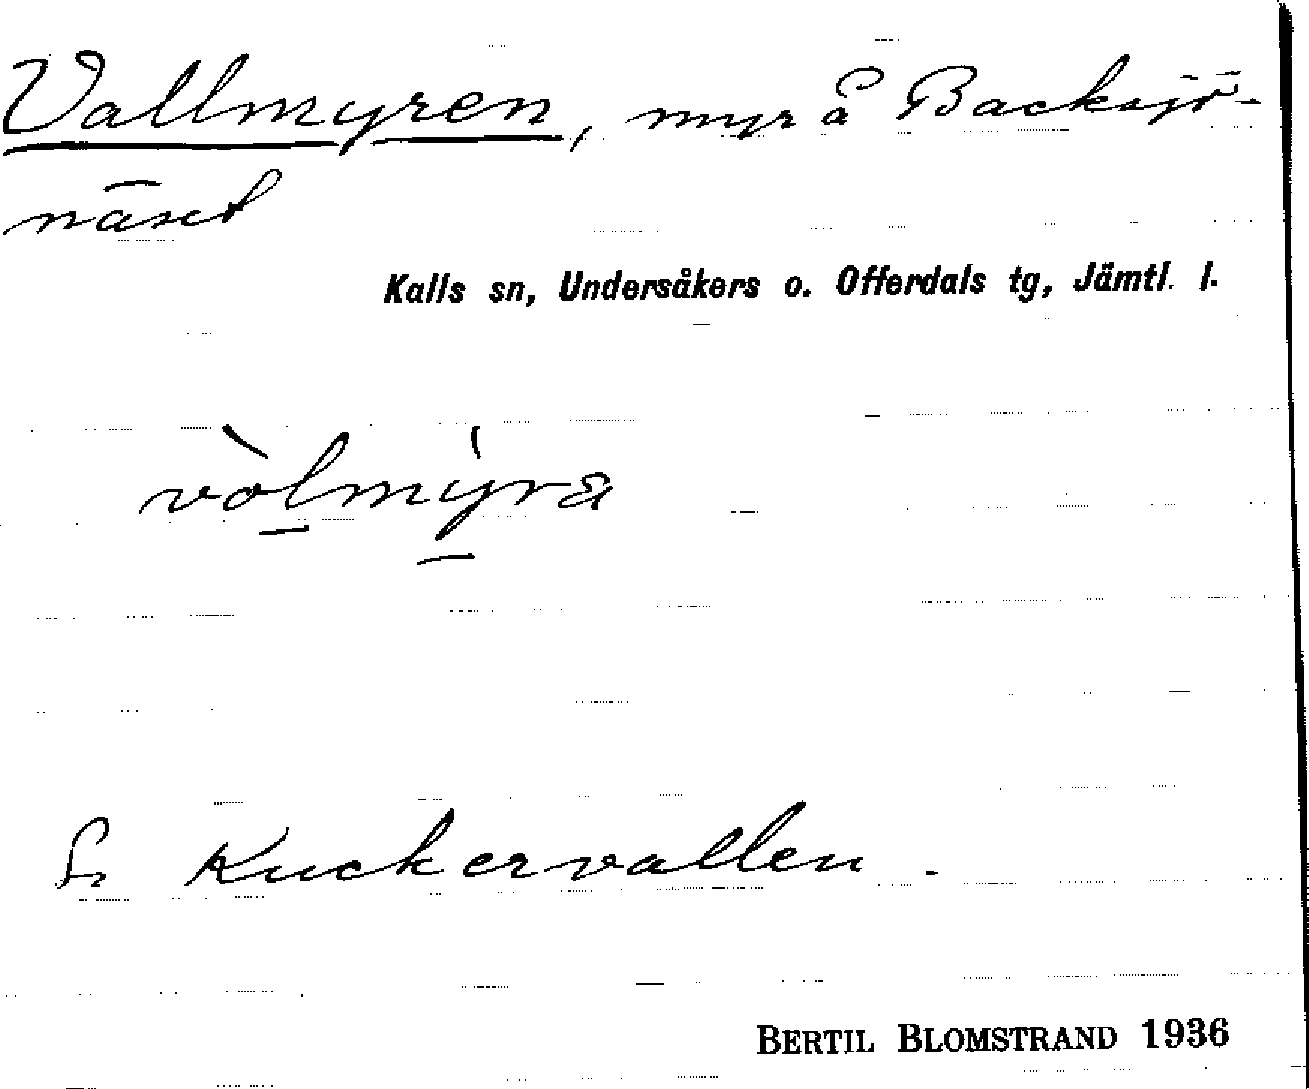 Vallmyren, myr å Backsjö-
näset
Kalls sn, Undersåkers o. Offerdals tg, Jämtl. l.
vòlmýra
Kuckervallen.
BERTIL BLOMSTRAND 1936